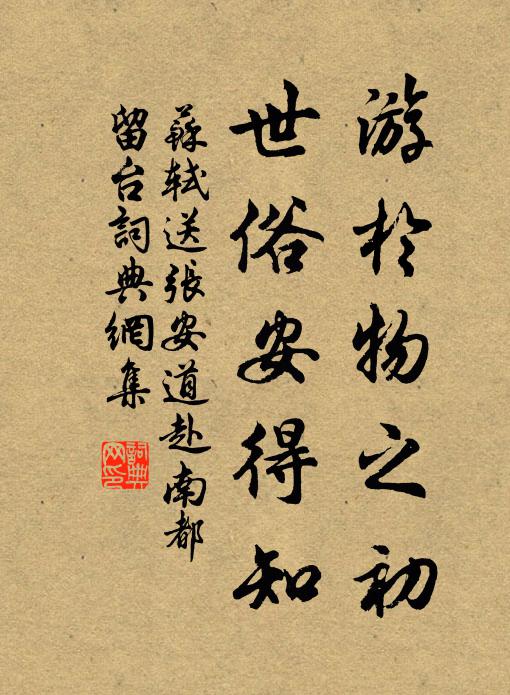 游於物之初
世俗安得知
蘇軾送張安道赴南都
留台詞典網集
詞典
网印